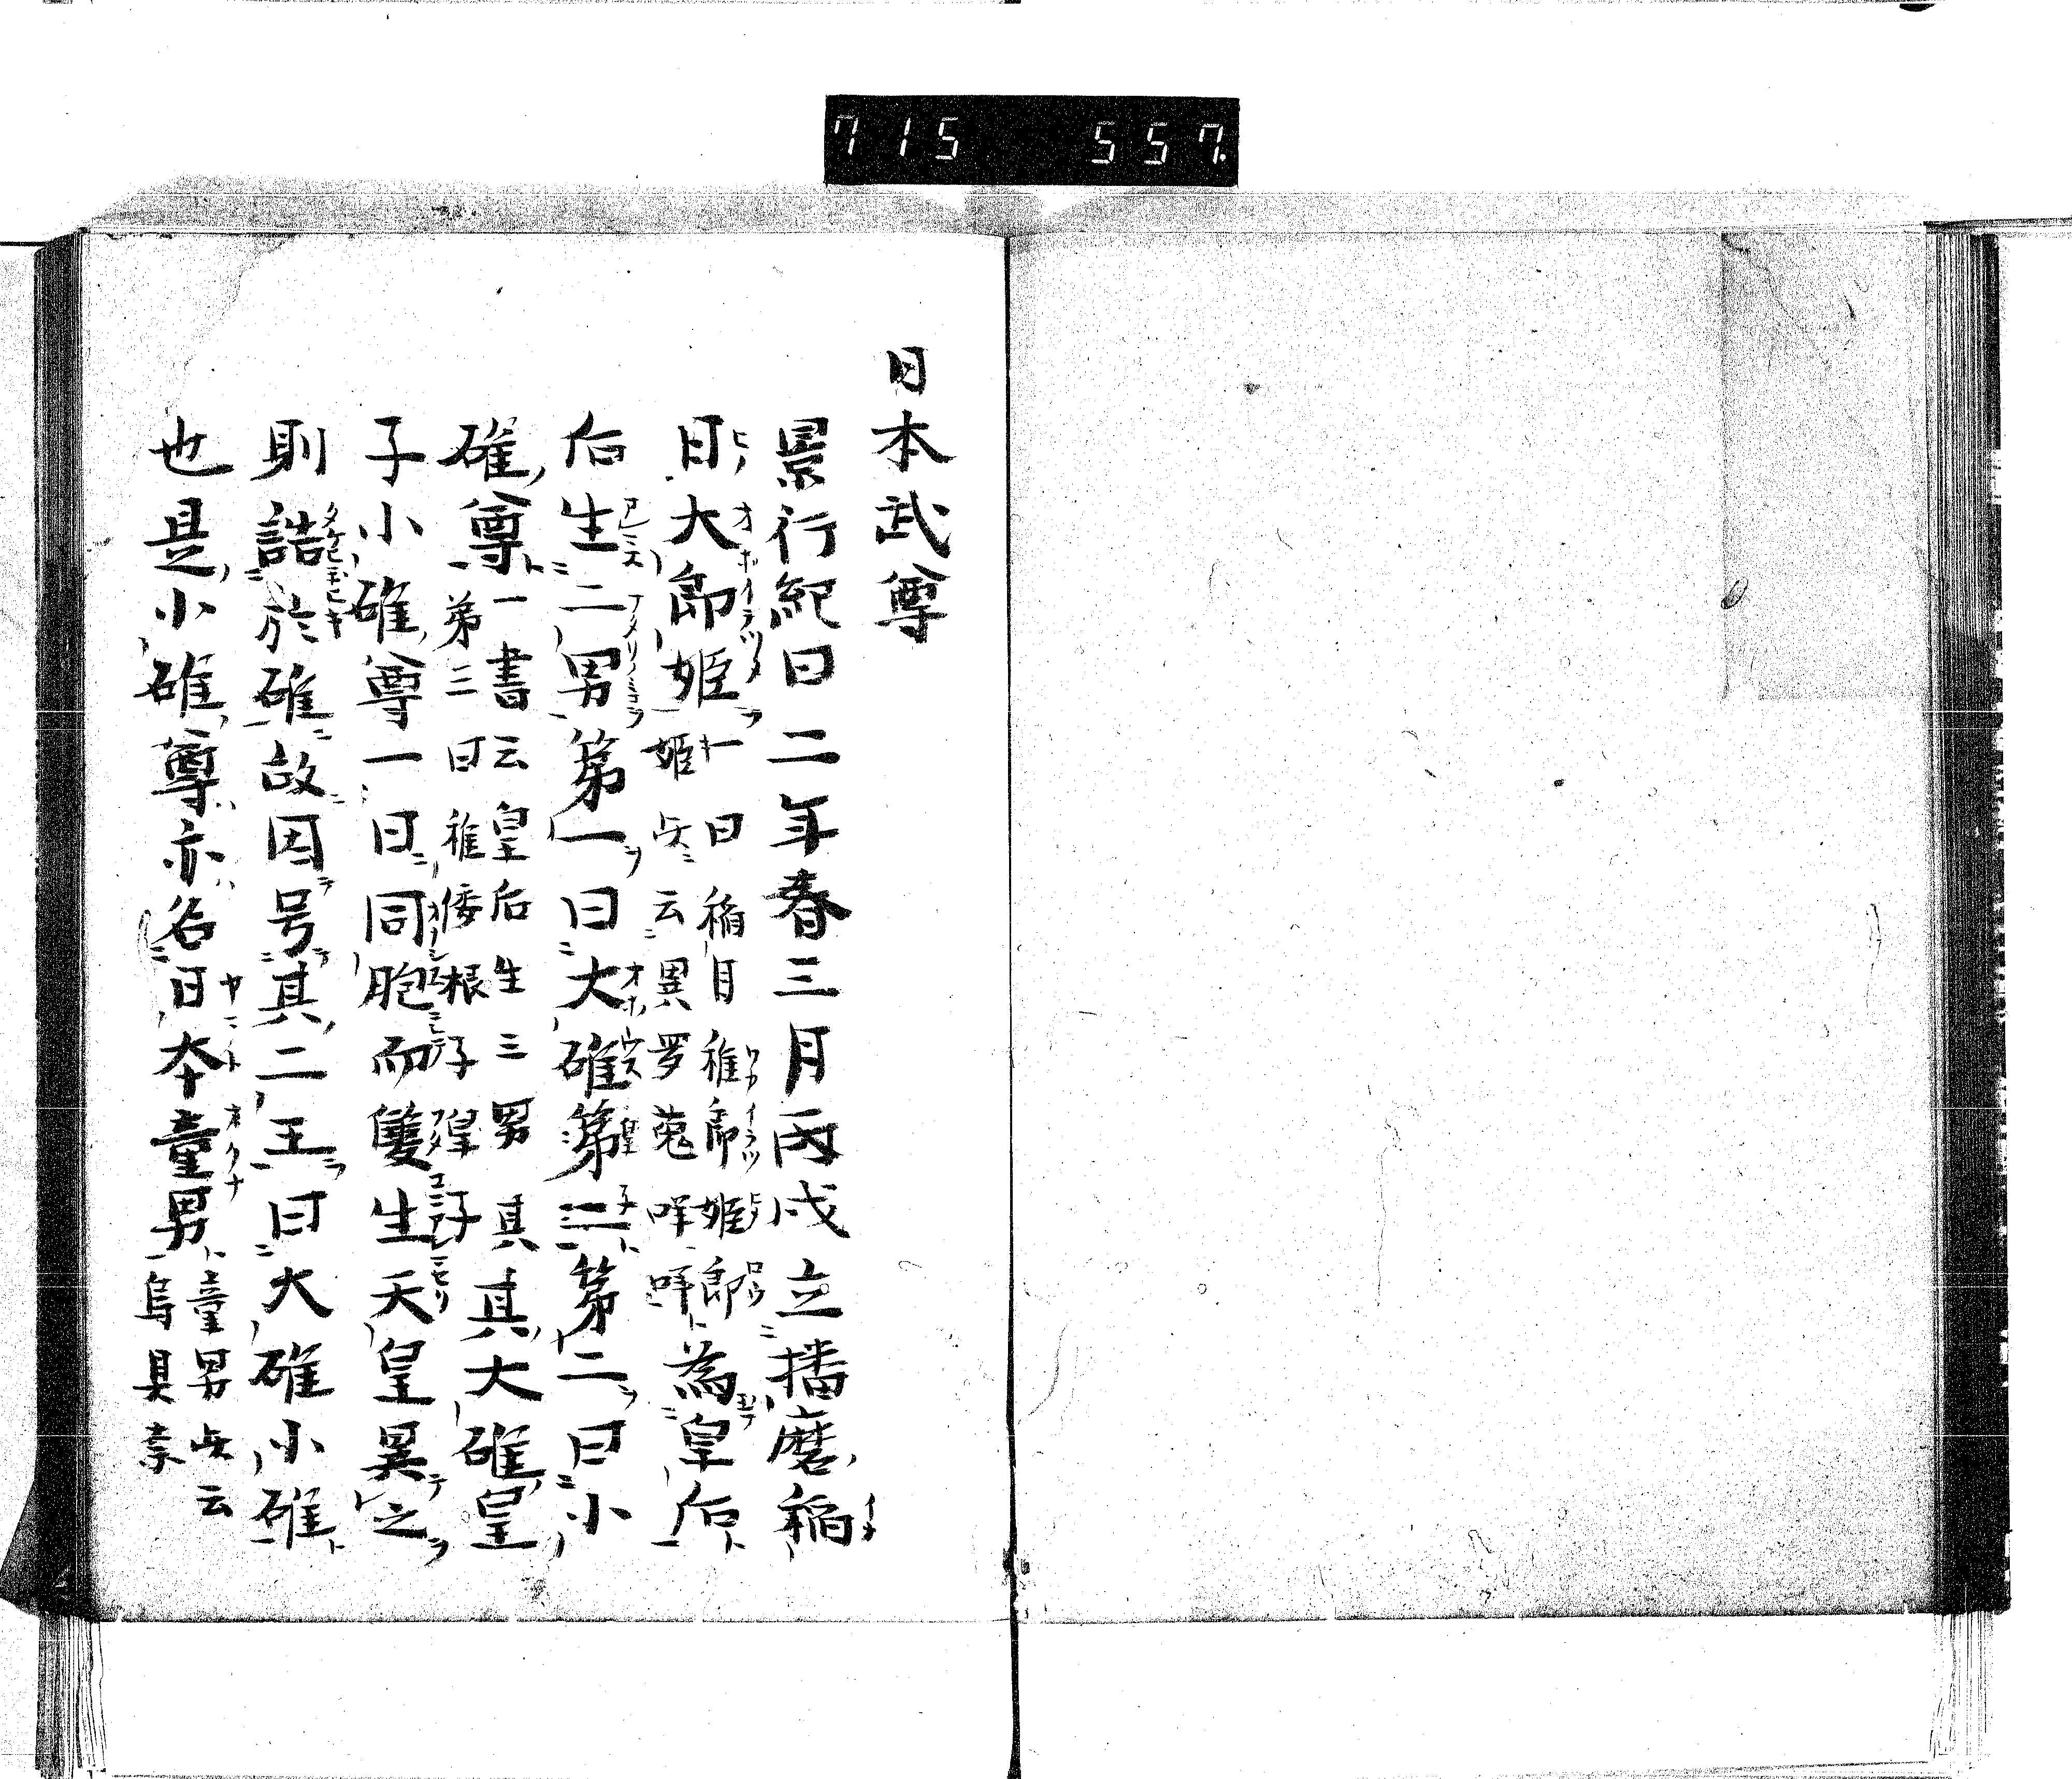 715 557.
日本武尊
景行紀曰二年春三月丙戌立播磨稲
日大郎姫一曰稲日稚郎姫郎
姫此云異羅菟咩為皇后
后生二男第一曰大碓皇子第二曰小
碓尊一書云皇后生三男其
第三曰稚倭根子皇子其大碓皇
子小碓尊一日同胞而雙生天皇異之
則誥於碓故因号其二王曰大碓小碓
也是小碓尊亦名日本童男童男此云
烏具奈